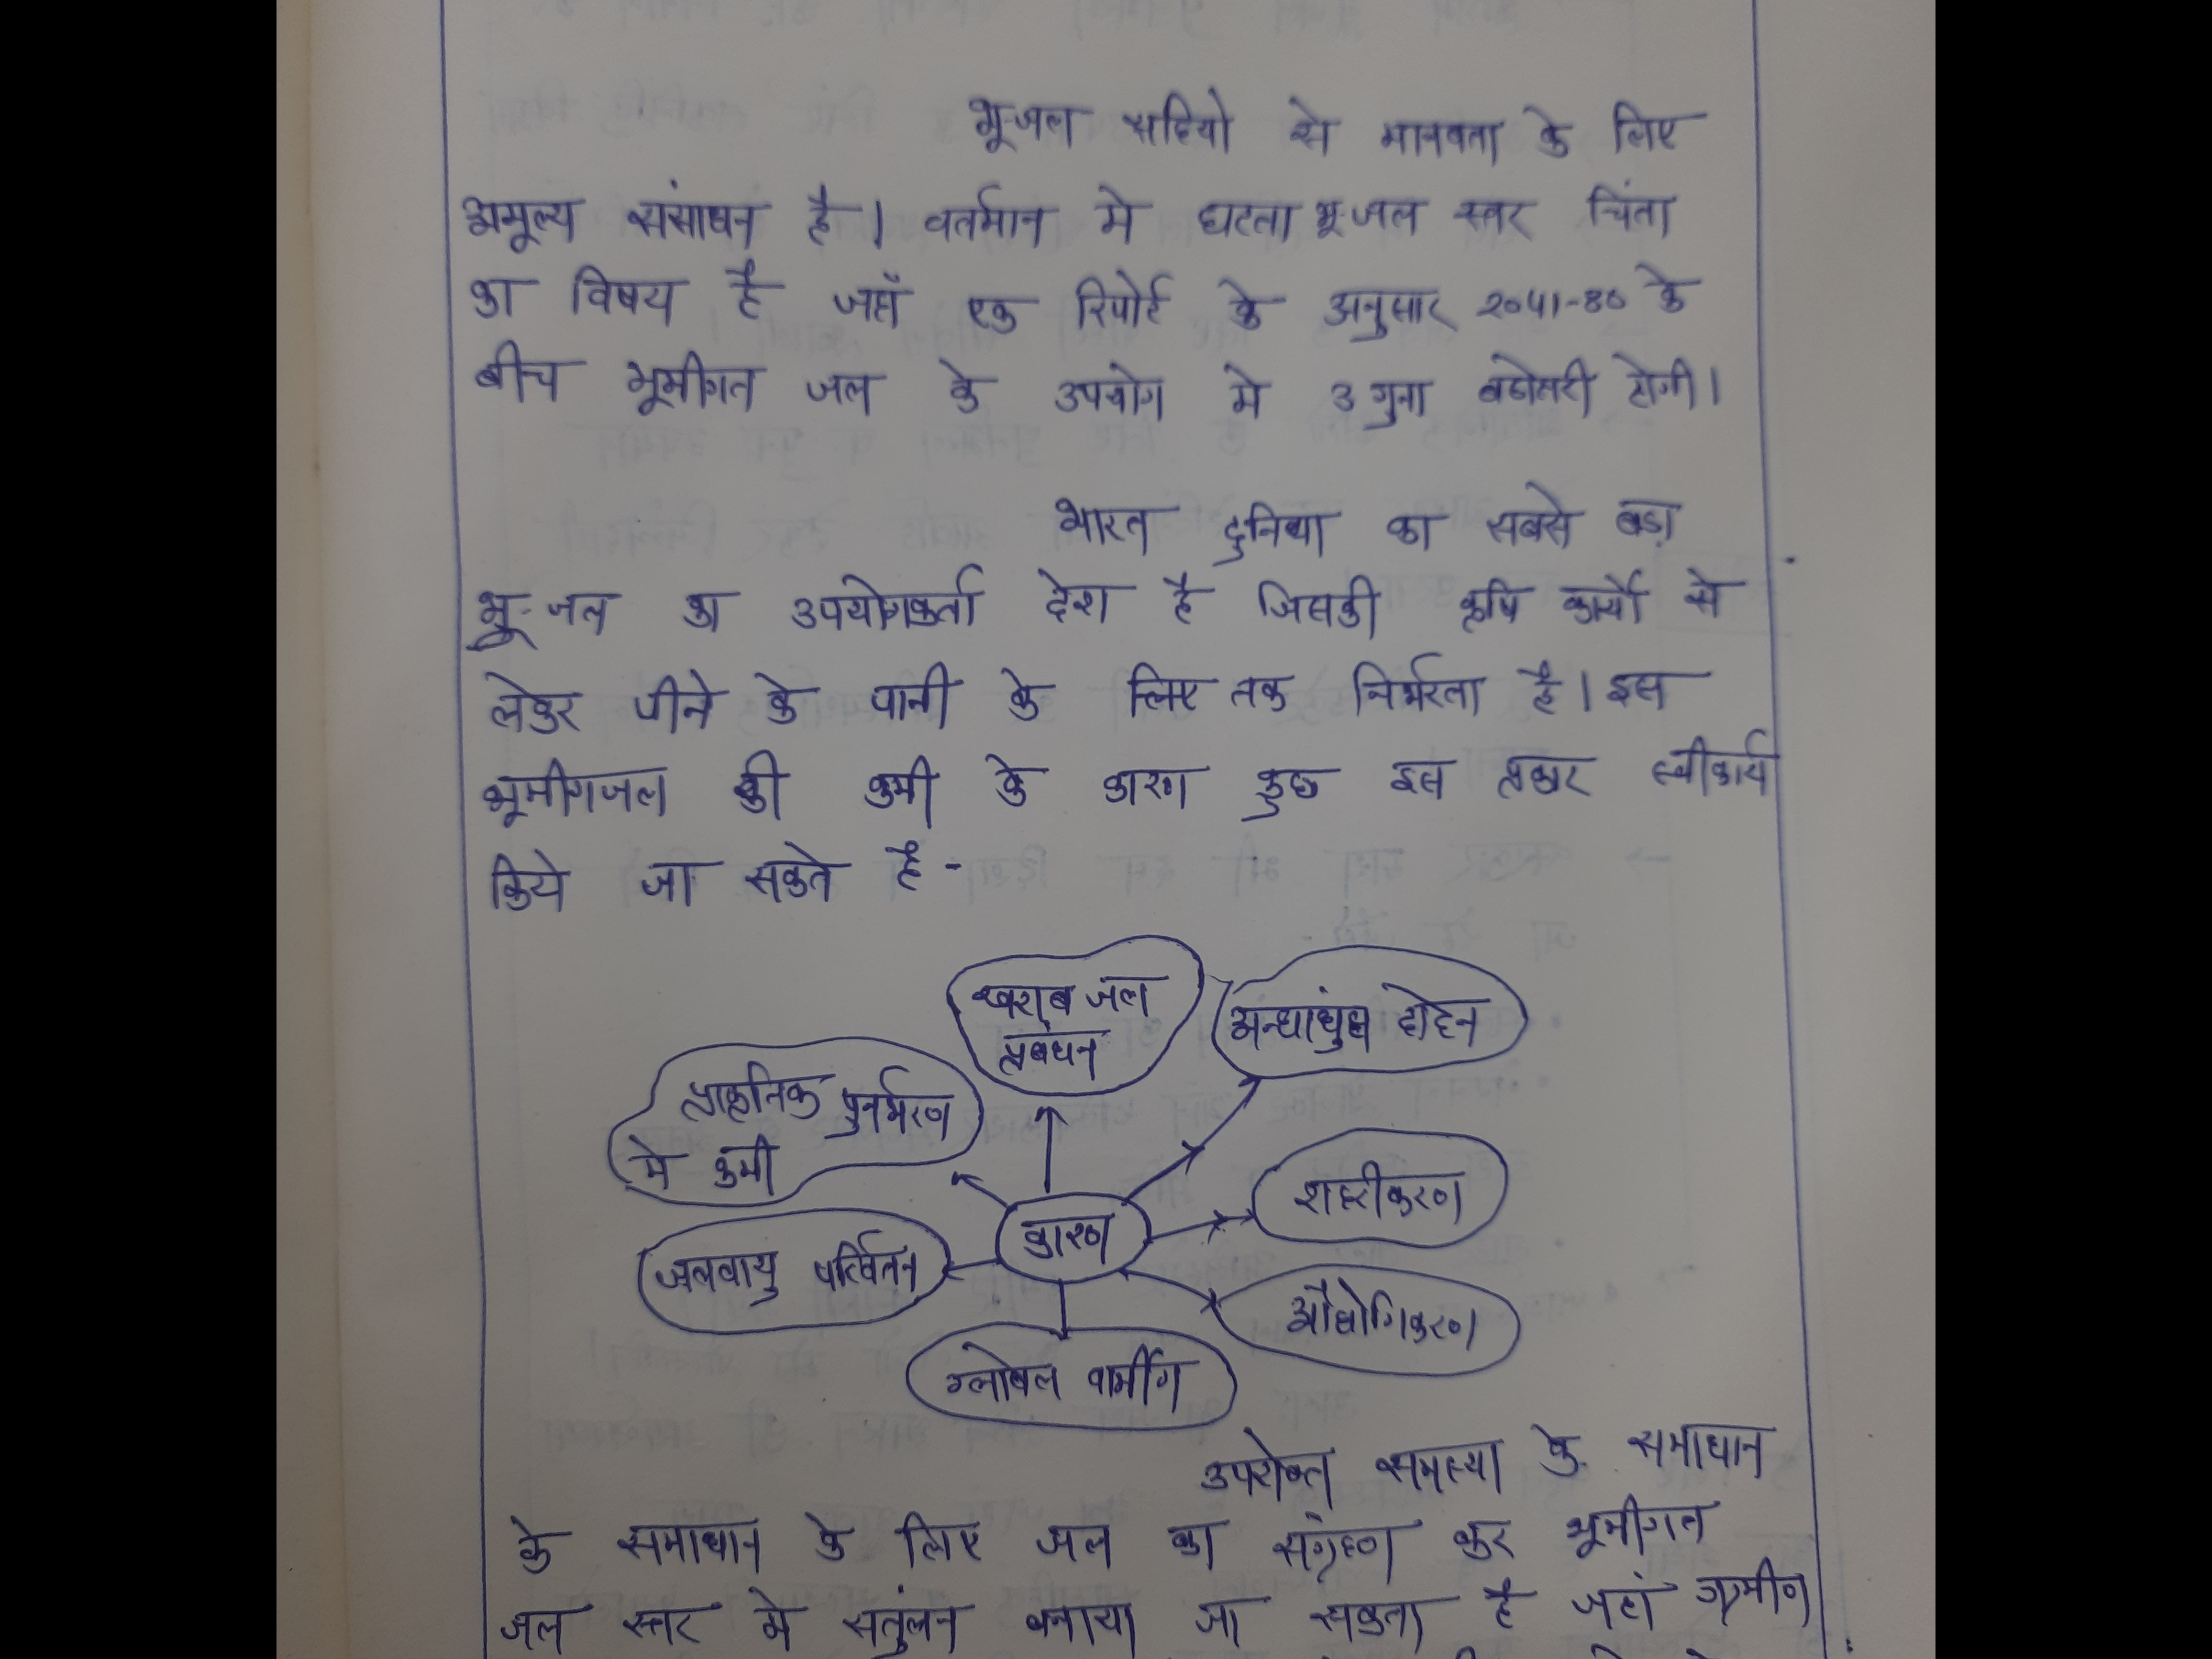 भू-जल सदियो से मानवता के लिए
अमूल्य संसाधन है। वर्तमान मे घटता भू-जल स्तर चिंता
का विषय है जहाँ एक रिपोर्ट के अनुसार 2041-80 के
बीच भूमीगत जल के उपयोग मे 3 गुना बढोतरी होगी।
भारत दुनिया का सबसे बड़ा
भू-जल का उपयोगकर्ता देश है जिसकी कृषि कार्यो से
लेकर पीने के पानी के लिए तक निर्भरता है। इस
भूमीगजल की कमी के कारण कुछ इस प्रकार स्वीकार्य
किये जा सकते है -
खराब जल
प्रबंधन
अन्धाधुंध दोहन
प्राकृतिक पुनर्भरण
मे कमी
शहरीकरण
कारण
जलवायु परिर्वतन
औद्योगिकरण
ग्लोबल वार्मीग
उपरोक्त समस्या के समाधान
के समाधान के लिए जल का संग्रहण कर भूमीगत
जल स्तर मे सतुंलन बनाया जा सकता है जहां ग्रमीण